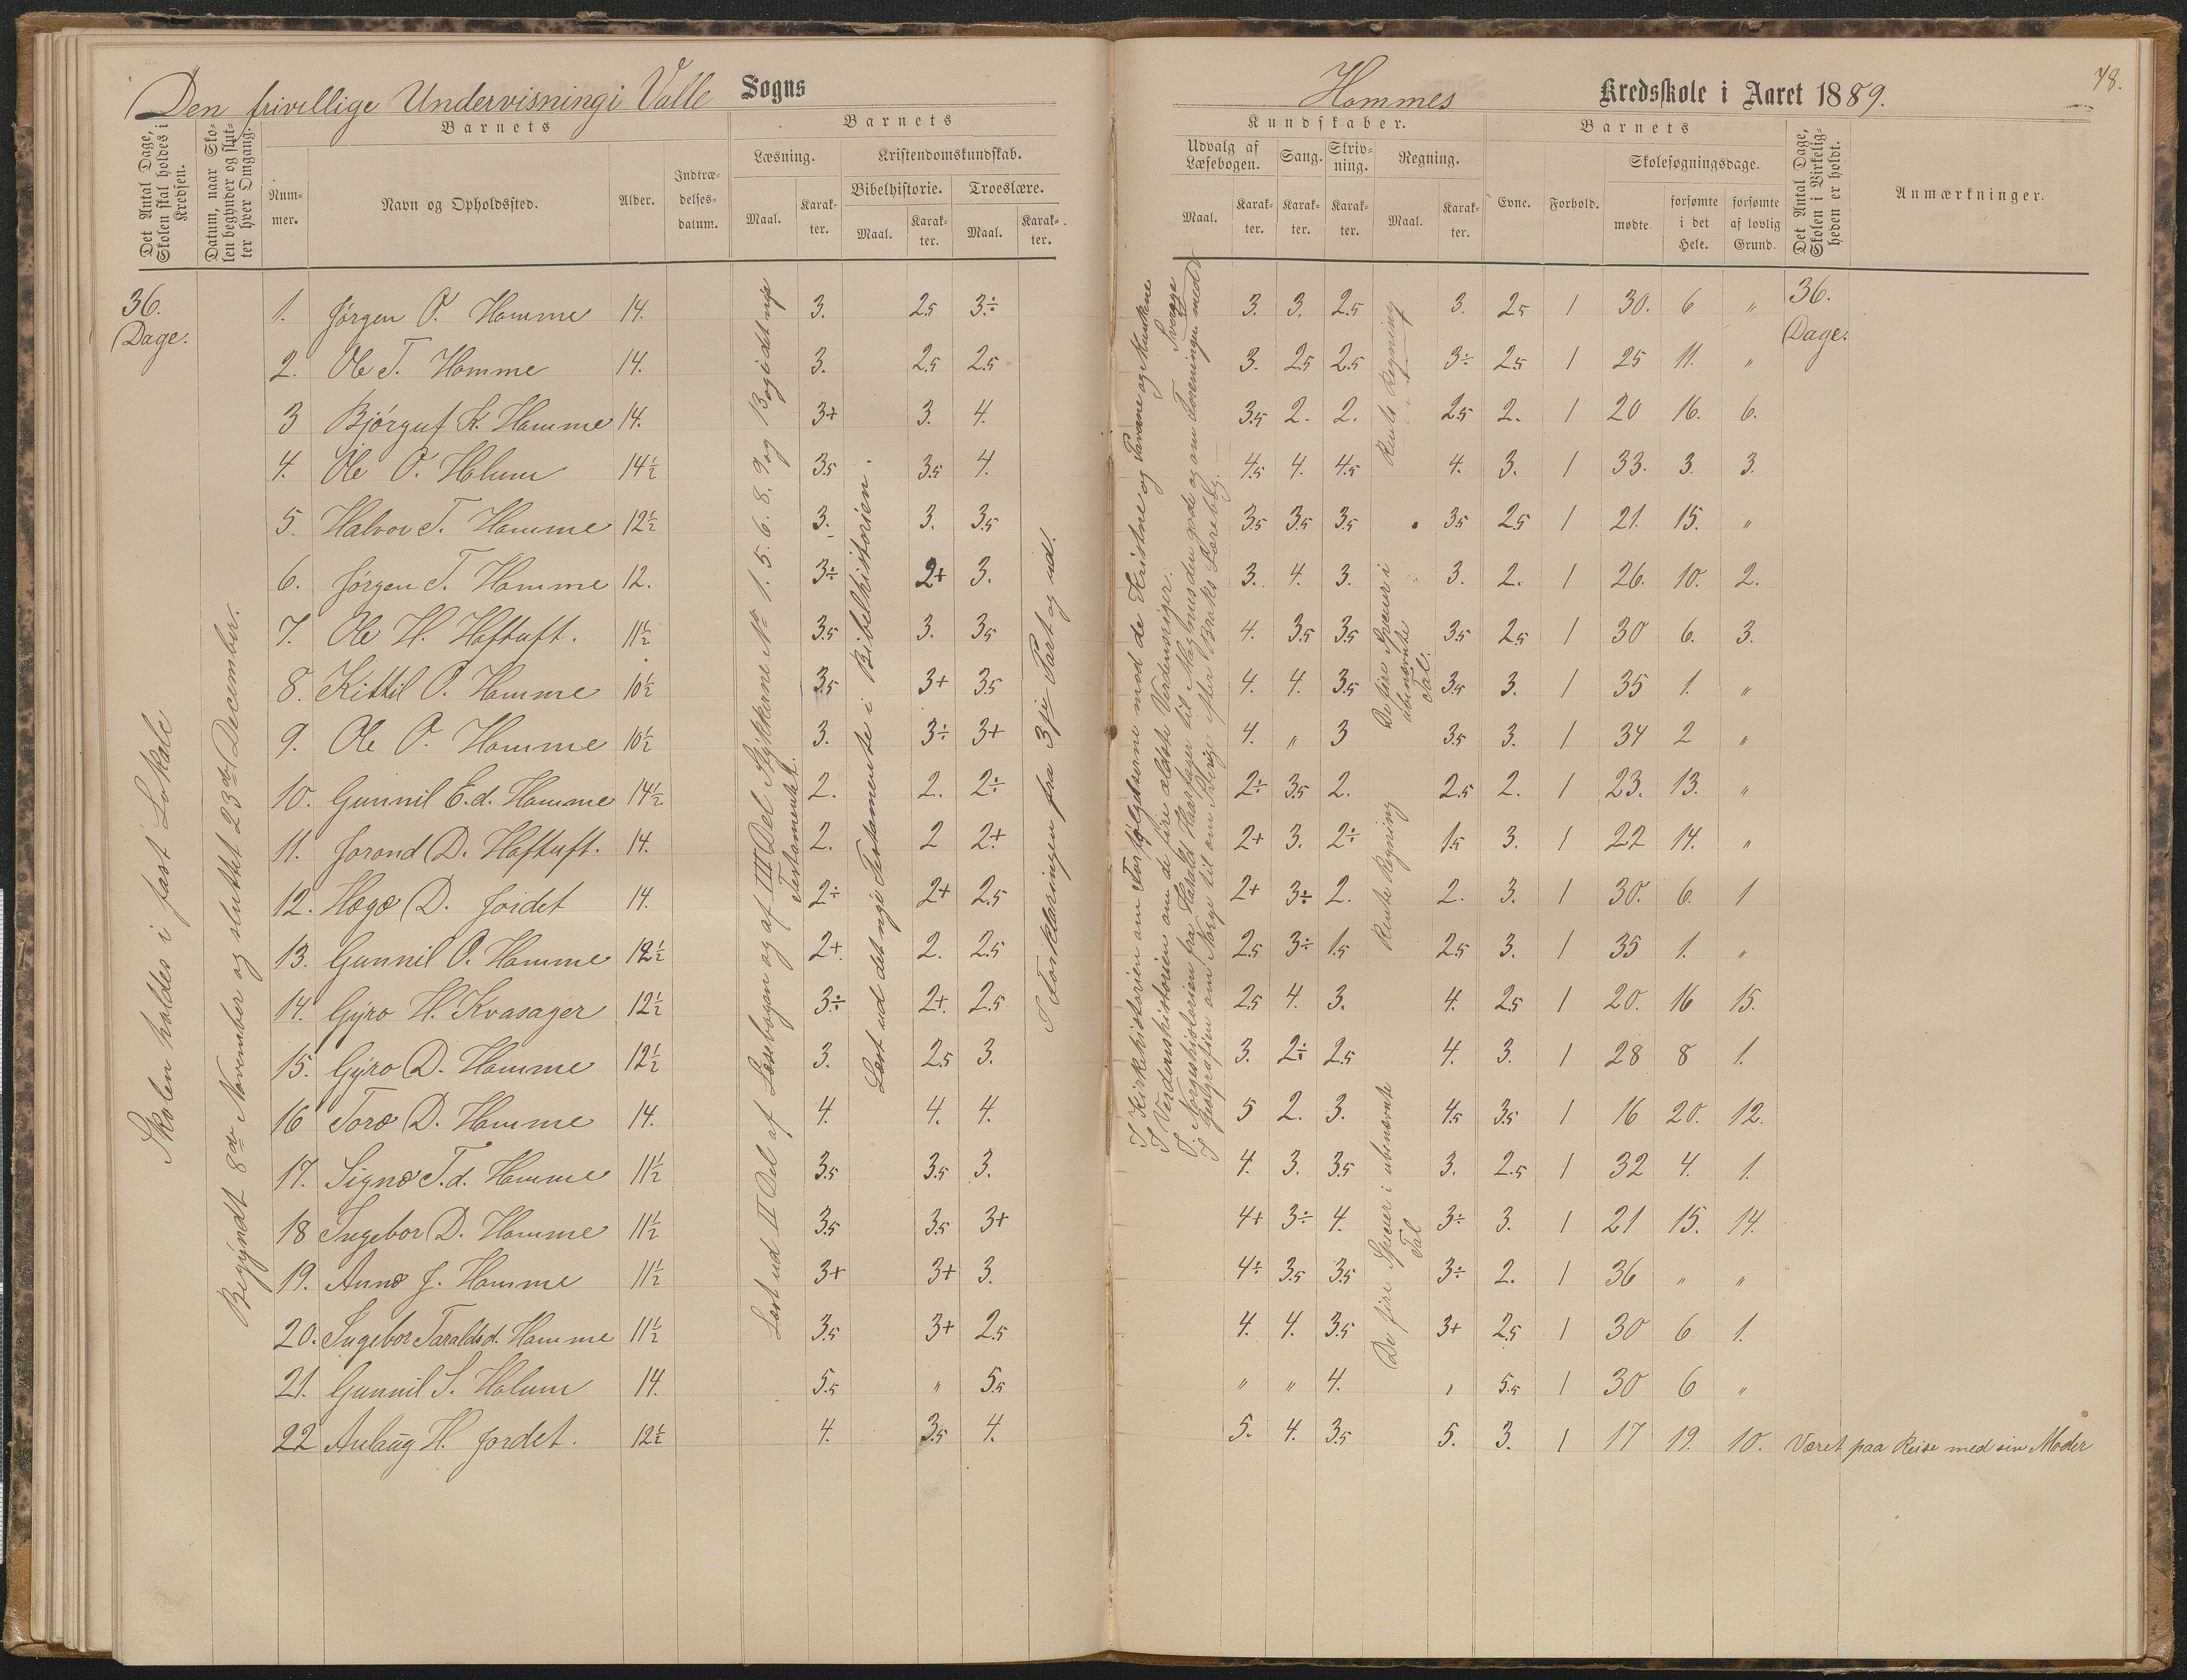 Den frivillige Undervisning i Valle Sogns
Det Antal Dage, Skolen skal holdes i Kredsen.
Datum, naar Skolen begynder og slutter hver Omgang.
Barnets
Nummer.
Navn og Opholdssted.
Alder.
Indtrædelsesdatum.
Barnets
Læsning.
Maal.
Karakter.
Kristendomskundskab.
Bibelhistorie.
Maal.
Karakter.
Troeslære.
Maal.
Karakter.
36. Dage.
Skolen holdes i fast Lokale
Begyndt 8de November og sluttet 23de December.
1. Jørgen O. Homme 14. 3. 2.5 3÷
2. Ole T. Homme 14. 3. 2.5 2.5
3 Bjørguf K. Homme 14. 3+ 3. 4.
4. Ole O. Holum 14½ 3.5 3.5 4.
5. Halvor T. Homme 12½ 3. 3. 3.5
6. Jørgen T. Homme 12. 3÷ 2+ 3.
7. Ole H. Haftuft. 11½ 3.5 3. 3.5
8. Kittil O. Homme 10½ 3.5 3+ 3.5
9. Ole O. Homme 10½ 3. 3÷ 3+
10. Gunnil E.d. Homme 14½ 2. 2. 2÷
11. Jorond D. Haftuft. 14. 2. 2 2+
12. Hægo D. Jordet 14. 2÷ 2+ 2.5
13. Gunnil O. Homme 12½ 2+. 2. 2.5
14. Gyro H. Kvasager 12½ 3÷ 2+. 2.5
15. Gyro D. Homme 12½ 3. 2.5 3.
16 Toro D. Homme 14. 4. 4. 4.
17. Signe T.d. Homme 11½ 3.5 3.5 3.
18 Ingebor D. Homme 11½ 3.5 3.5 3+
19. Anne J. Homme 11½ 3+ 3+ 3.
20. Ingebor Taraldsd. Homme 11½ 3.5 3+ 2.5
21. Gunnil S. Holum 14. 5.5 " 5.5
22 Anlaug H. Jordet. 12½ 4. 3.5 4.
Læst ud II Del af Læsebogen og af III Del Stykkerne No 1. 5. 6. 8. 9 og 13 og i det nye Testamentet.
Læst ud det nye Testamente i Bibelhistorien.
I Forklaringen fra 3die Part og ud.
Hommes Kredsskole i Aaret 1889.
78.
Kundskaber.
Udvalg af Læsebogen.
Maal.
Karakter.
Sang.
Karakter.
Skrivning.
Karakter.
Regning.
Maal.
Karakter.
Barnets
Evne.
Forhold.
Skolesøgningsdage.
mødte.
forsømte i det Hele.
forsømte af lovlig Grund.
Det Antal Dage, Skolen i Virkeligheden er holdt.
Anmærkninger.
I Kirkehistorien om Forfølgelserne mod de Kristne og Paverne og Munkene
I Verdenshistorien om de fire ældste Verdensriger.
I Norgeshistorien fra Harald Haarfager til Magnus den gode og om Foreningen med Sverige
I Geografien om Norge til om Sverige efter Broks Lærebog.
Rente Regning
De fire Specier i ubenævnte Tal.
Rente Regning
De fire Specier i ubenævnte Tal
36. Dage.
3. 3. 2.5 3. 2.5 1 30. 6 "
3. 2.5 2.5 3÷ 2.5 1 25 11. "
3.5 2. 2. 2.5 2. 1 20 16. 6.
4.5 4. 4.5 4. 3. 1 33. 3. 3.
3.5 3.5 3.5 3.5 2.5 1 21. 15. "
3. 4. 3. 3. 2. 1 26. 10. 2.
4. 3.5 3.5 3.5 2.5 1 30 6. 3.
4. 4. 3.5 3.5 3. 1 35 1. "
4. " 3 3.5 3. 1 34 2 "
2÷ 3.5 2. 2.5 2. 1 23. 13. "
2+ 3. 2÷ 1.5 3. 1 22 14. "
2+ 3÷ 2. 2. 3. 1 30. 6. 1
2.5 3÷ 1.5 2.5 3. 1 35 1. "
2.5 4. 3. 4. 2.5 1 20. 16 15.
3. 2÷ 2.5 4. 3. 1 28 8 1.
5 2. 3. 4.5 3.5 1 16 20. 12.
4. 3. 3.5 3. 2.5 1 32 4. 1.
4+ 3÷ 4. 3÷ 3. 1 21 15. 14.
4÷ 3.5 3.5 3÷ 2. 1 36 " "
4. 4. 3.5 3+ 2.5 1 30 6. 1.
" " 4. " 5.5 1 30 6 "
5. 4. 3.5 5. 3. 1 17 19. 10. Været paa Reise med sin Moder